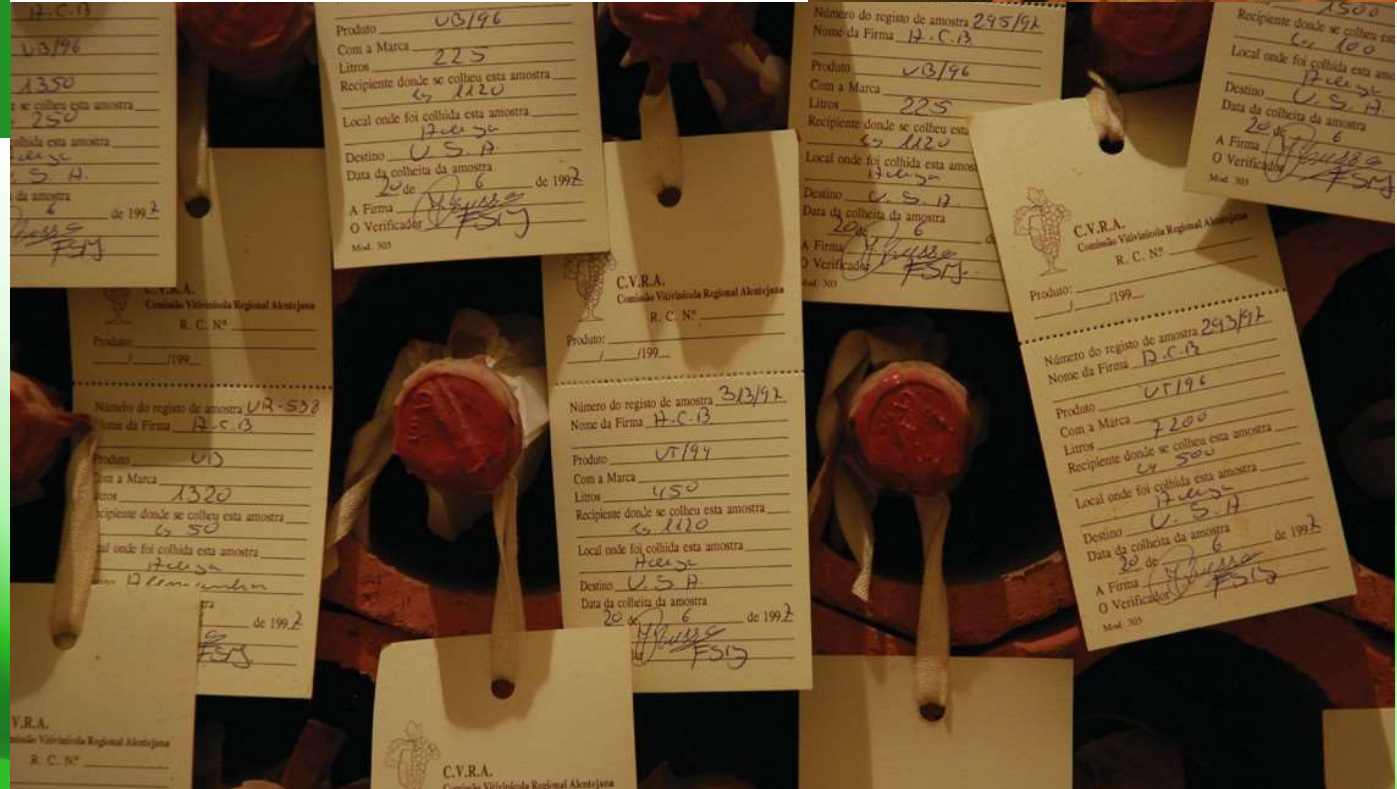 A.C.B
UB/96
1350
se colheu esta amostra
250
colhida esta amostra
S. A.
da amostra
6 de 1997
FSM
Produto UB/96
Com a Marca
Litros 225
Recipiente donde se colheu esta amostra
Cs 1120
Local onde foi colhida esta amostra
Destino U.S.A.
Data da colheita da amostra
20 de 6 de 1997
A Firma
O Verificador
Mod. 303
Número do registo de amostra 295/97
Nome da Firma A.C.B.
Produto UB/96
Com a Marca
Litros 225
Recipiente donde se colheu esta
Cs 1120
Local onde foi colhida esta amos
Destino U.S.A.
Data da colheita da amostra
20 de 6
A Firma
O Verificador
Mod. 303
1500
Recipiente donde se colheu est
Cs 100
Local onde foi colhida esta am
Destino U.S.A.
Data da colheita da amostra
20 de 6
A Firma
O Verificador
Mod. 303
C.V.R.A.
Comissão Vitivinícola Regional Alentejana
R. C. Nº
Produto:
/ /199
Número do registo de amostra UR-538
Nome da Firma A.C.B
Produto UB
Com a Marca
Litros 1320
Recipiente donde se colheu esta amostra
Cs 50
Local onde foi colhida esta amostra
Alemanha
de 1997
C.V.R.A.
Comissão Vitivinícola Regional Alentejana
R. C. Nº
Produto:
/ /199
Número do registo de amostra 313/97
Nome da Firma A.C.B
Produto UT/94
Com a Marca
Litros 450
Recipiente donde se colheu esta amostra
Cs 1120
Local onde foi colhida esta amostra
Destino U.S.A.
Data da colheita da amostra
20 de 6 de 1997
C.V.R.A.
Comissão Vitivinícola Regional Alentejana
R. C. Nº
Produto:
/ /199
Número do registo de amostra 293/97
Nome da Firma A.C.B
Produto UT/96
Com a Marca
Litros 7200
Recipiente donde se colheu esta amostra
Cs 500
Local onde foi colhida esta amostra
Destino U.S.A.
Data da colheita da amostra
20 de 6 de 1997
A Firma
O Verificador
Mod. 303
V.R.A.
Vitivinícola Regional Alentejana
R. C. Nº
C.V.R.A.
Comissão Vitivinícola Regional Alentejana